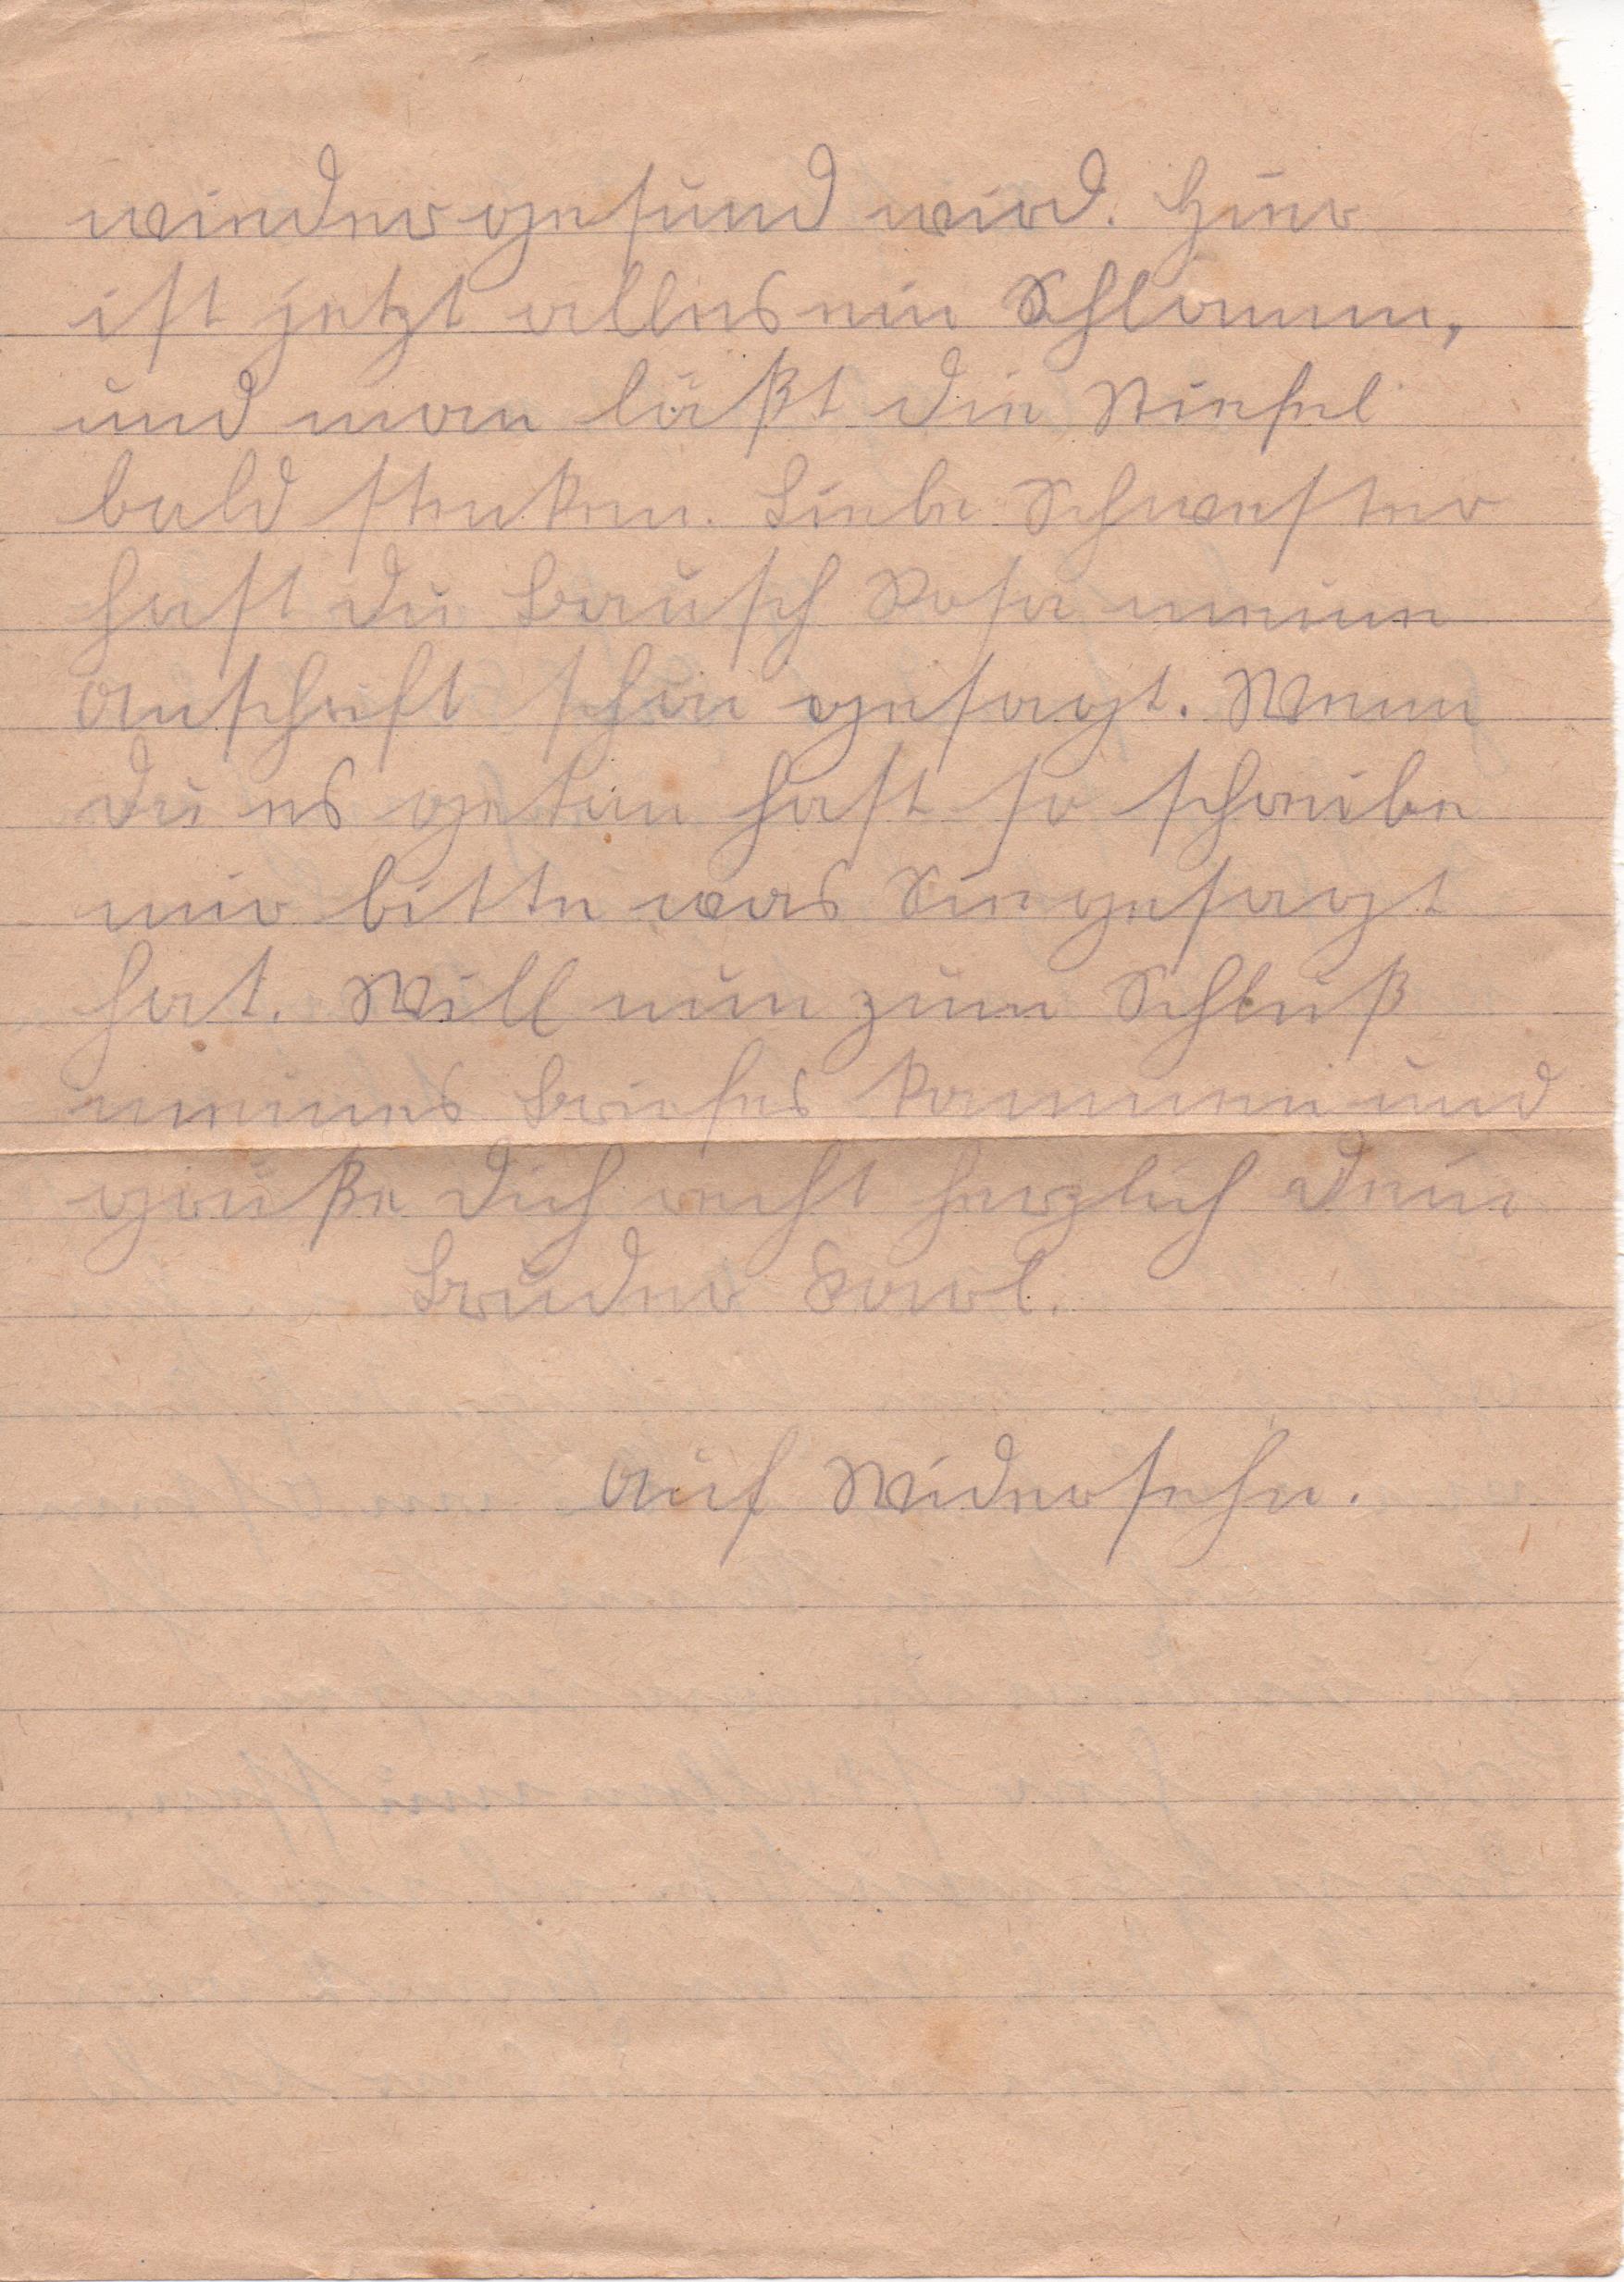 wieder gesund wird. Hier
ist jetzt alles ein Schlamm,
und man läßt die Stiefel
bald steken. Liebe Schwester
hast du Brusch Rosa meine
Anschrift schon gesagt. Wenn
du es getan hast so schreibe
mir bitte was Sie gesagt
hat. Will nun zum Schluß
meines Briefes kommen und
grüße dich recht herzlich dein
Bruder Karl.
Auf Widersehn.